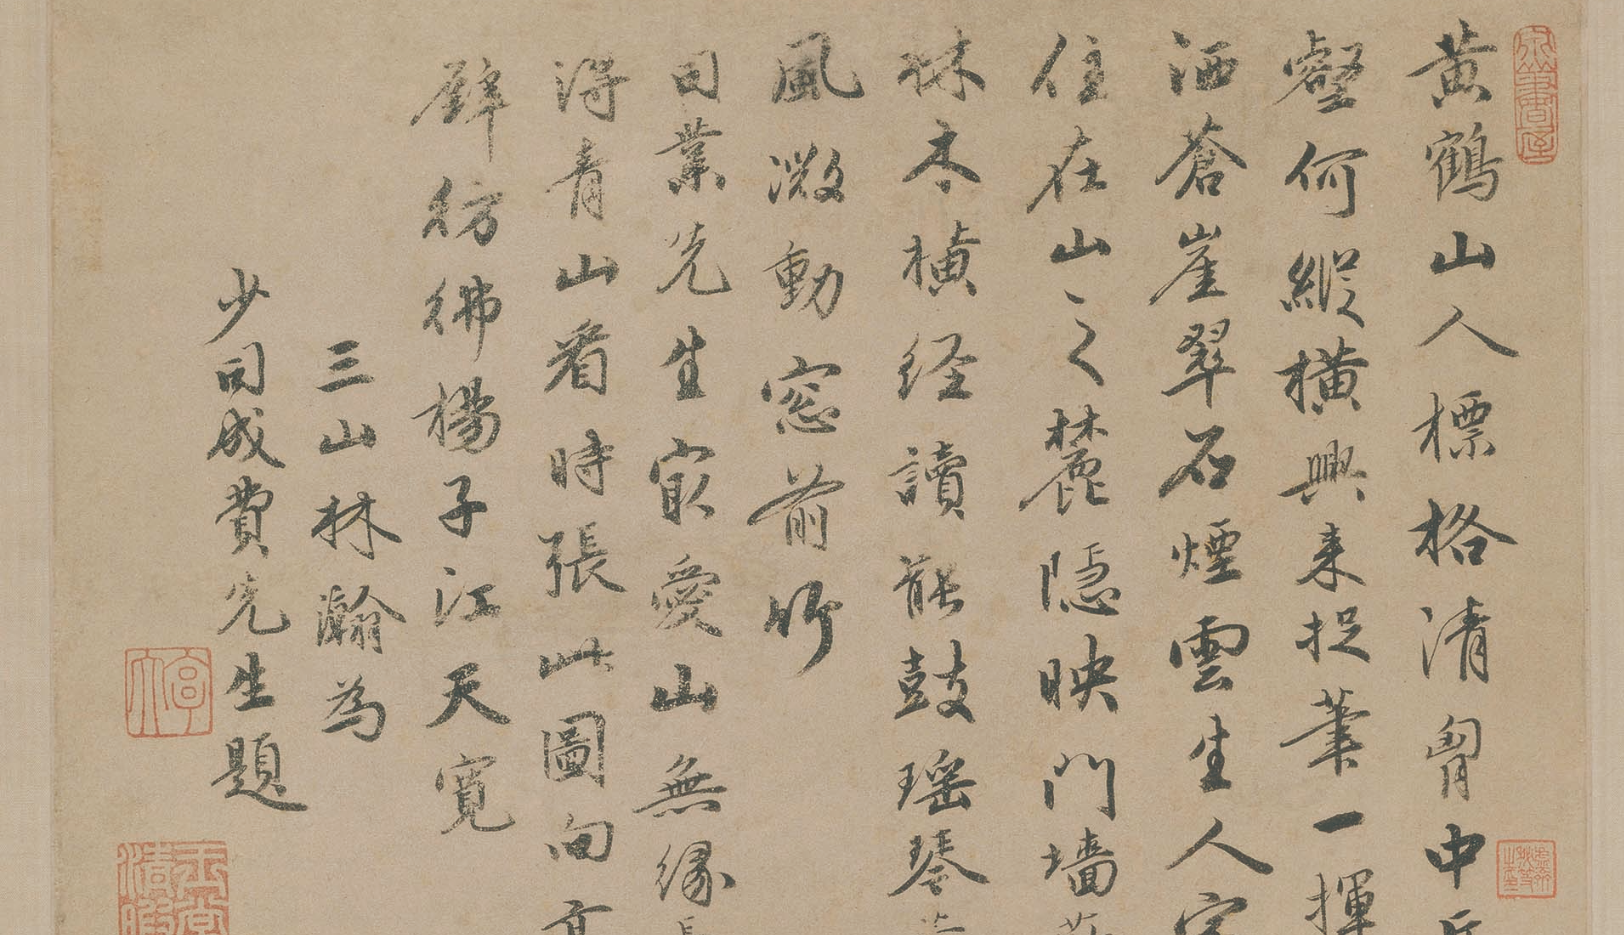 黄鶴山人標格清胷中
壑何縱横興来捉筆一揮
洒蒼崖翠石煙雲生人
住在山之麓隱映門墙
林木横经讀能鼓瑶琴
風激動窓前竹
司業先生㝡愛山無缘
得青山看時張此圖向
壁彷彿楊子江天寛
三山林瀚為
少司成費先生題